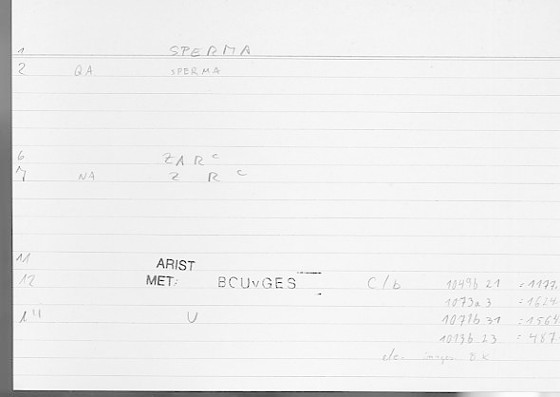 1 SPERMA
2 QA SPERMA
6 ZAR c
7 NA Z R c
11
ARIST
12 MET: BCUVGES C/b 1049b 21 = 1177,
1073a 3 = 1624
1" U 1071b 31 = 1564
1029b 23 = 487